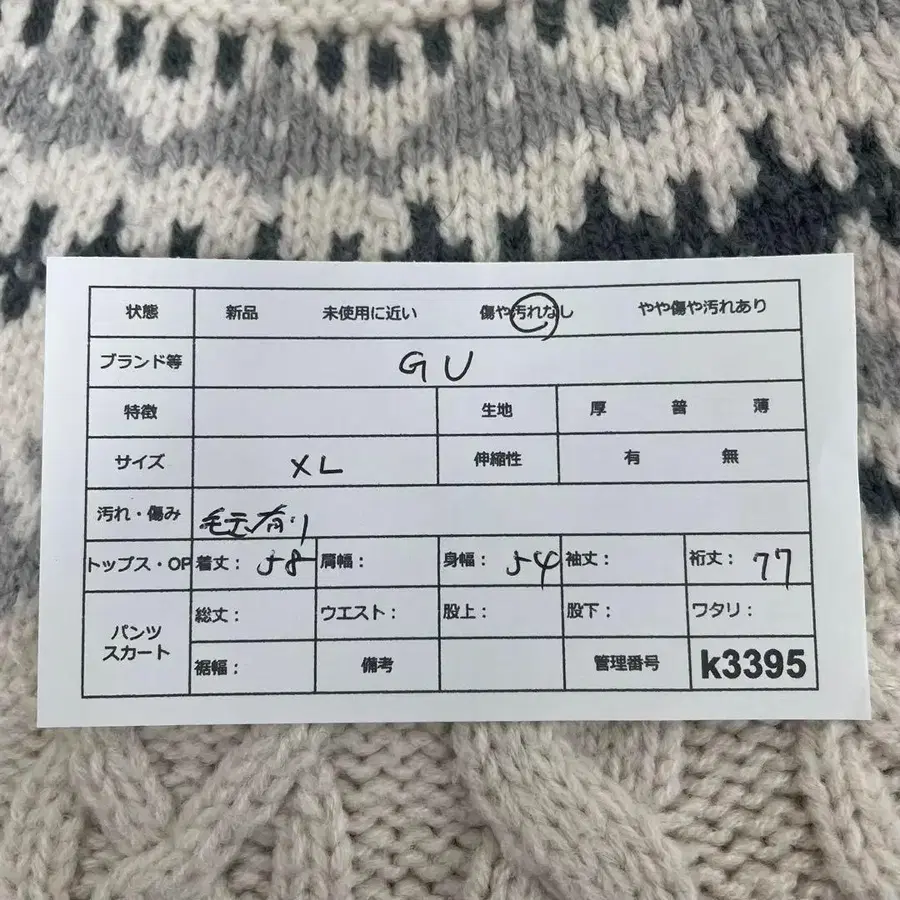 状態 新品 未使用に近い 傷や汚れなし やや傷や汚れあり
ブランド等 GU
特徴 生地 厚 普 薄
サイズ XL 伸縮性 有 無
汚れ・傷み 毛玉有り
トップス・OP 着丈： 58 肩幅： 身幅： 54 袖丈： 裄丈： 77
パンツ スカート 総丈： ウエスト： 股上： 股下： ワタリ：
裾幅： 備考 管理番号 k3395